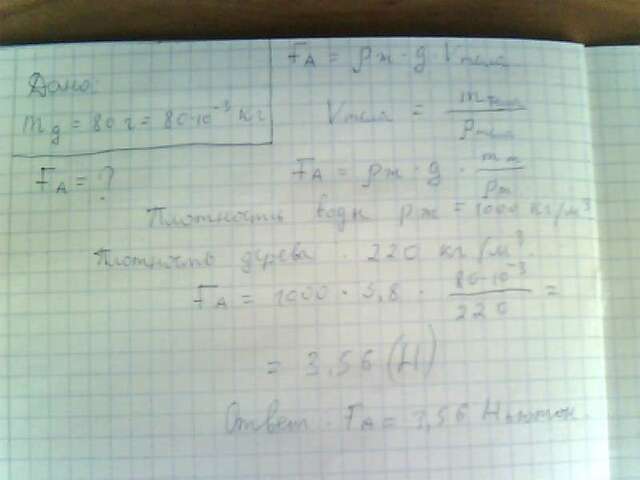 Дано:
m д = 80 г = 80·10⁻³ кг
F A = ?
F A = ρ ж · g · V тела
V тела = m тела / ρ тела
F A = ρ ж · g · m т / ρ т
Плотность воды ρ ж = 1000 кг/м³
Плотность дерева · 220 кг/м³
F A = 1000 · 9,8 · 80·10⁻³ / 220 =
= 3,56 (Н)
Ответ · F A = 3,56 Ньютон.